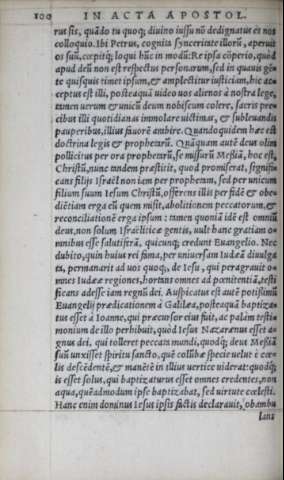 100 IN ACTA APOSTOL.
rus sis, quãdo tu quoq; diuino iussu nõ dedignatus es nos
colloquio. Ibi Petrus, cognita synceritate illorũ, aperuit
os suũ, cœpitq; loqui hũc in modũ: Re ipsa cõperio, quòd
apud deũ non est respectus personarum, sed in quauis gẽ
te quisquis timet ipsum, & amplectitur iusticiam, hic ac
ceptus est illi, posteaquã uideo uos alienos à nostra lege,
tamen uerum & unicũ deum nobiscum colere, sacris pre
cibus illi quotidianas immolare uictimas, & subleuandis
pauperibus, illius fauorẽ ambire. Quandoquidem hæc est
doctrina legis & prophetarũ. Quãquam autẽ deus olim
pollicitus per ora prophetarũ, se missurũ Messiã, hoc est,
Christũ, nunc tandem præstitit, quod promiserat, signifi
cans filijs Israël non iam per prophetam, sed per unicum
filium suum Iesum Christũ, offerens illis per fidẽ & obe
diẽtiam erga eũ quem misit, abolitionem peccatorum, &
reconciliationẽ erga ipsum: tamen quoniã idẽ est omniũ
deus, non solum Israëliticæ gentis, uult hanc gratiam o-
mnibus esse salutiferã, quicunq; credunt Euangelio. Nec
dubito, quin huius rei fama, per uniuersam Iudæã diuulga
ta, permanarit ad uos quoq;, de Iesu, qui peragrauit o-
mnes Iudææ regiones, hortans omnes ad pœnitentiã, testi
ficans adesse iam regnũ dei. Auspicatus est autẽ potissimũ
Euangelij prædicationem à Galilæa, posteaquã baptiza-
tus esset à Ioanne, qui præcursor eius fuit, ac palàm testi-
monium de illo perhibuit, quòd Iesus Nazarenus esset a-
gnus dei, qui tolleret peccata mundi, quodq; deus Messiã
suũ unxisset spiritu sancto, quẽ colũbæ specie uelut è cœ-
lis descẽdentẽ, & manẽtẽ in illius vertice uiderat: quodq;
is esset solus, qui baptizaturus esset omnes credentes, non
aqua, quẽadmodum ipse baptizabat, sed uirtute cœlesti.
Hanc enim dominus Iesus ipsis factis declarauit, obambu
lans